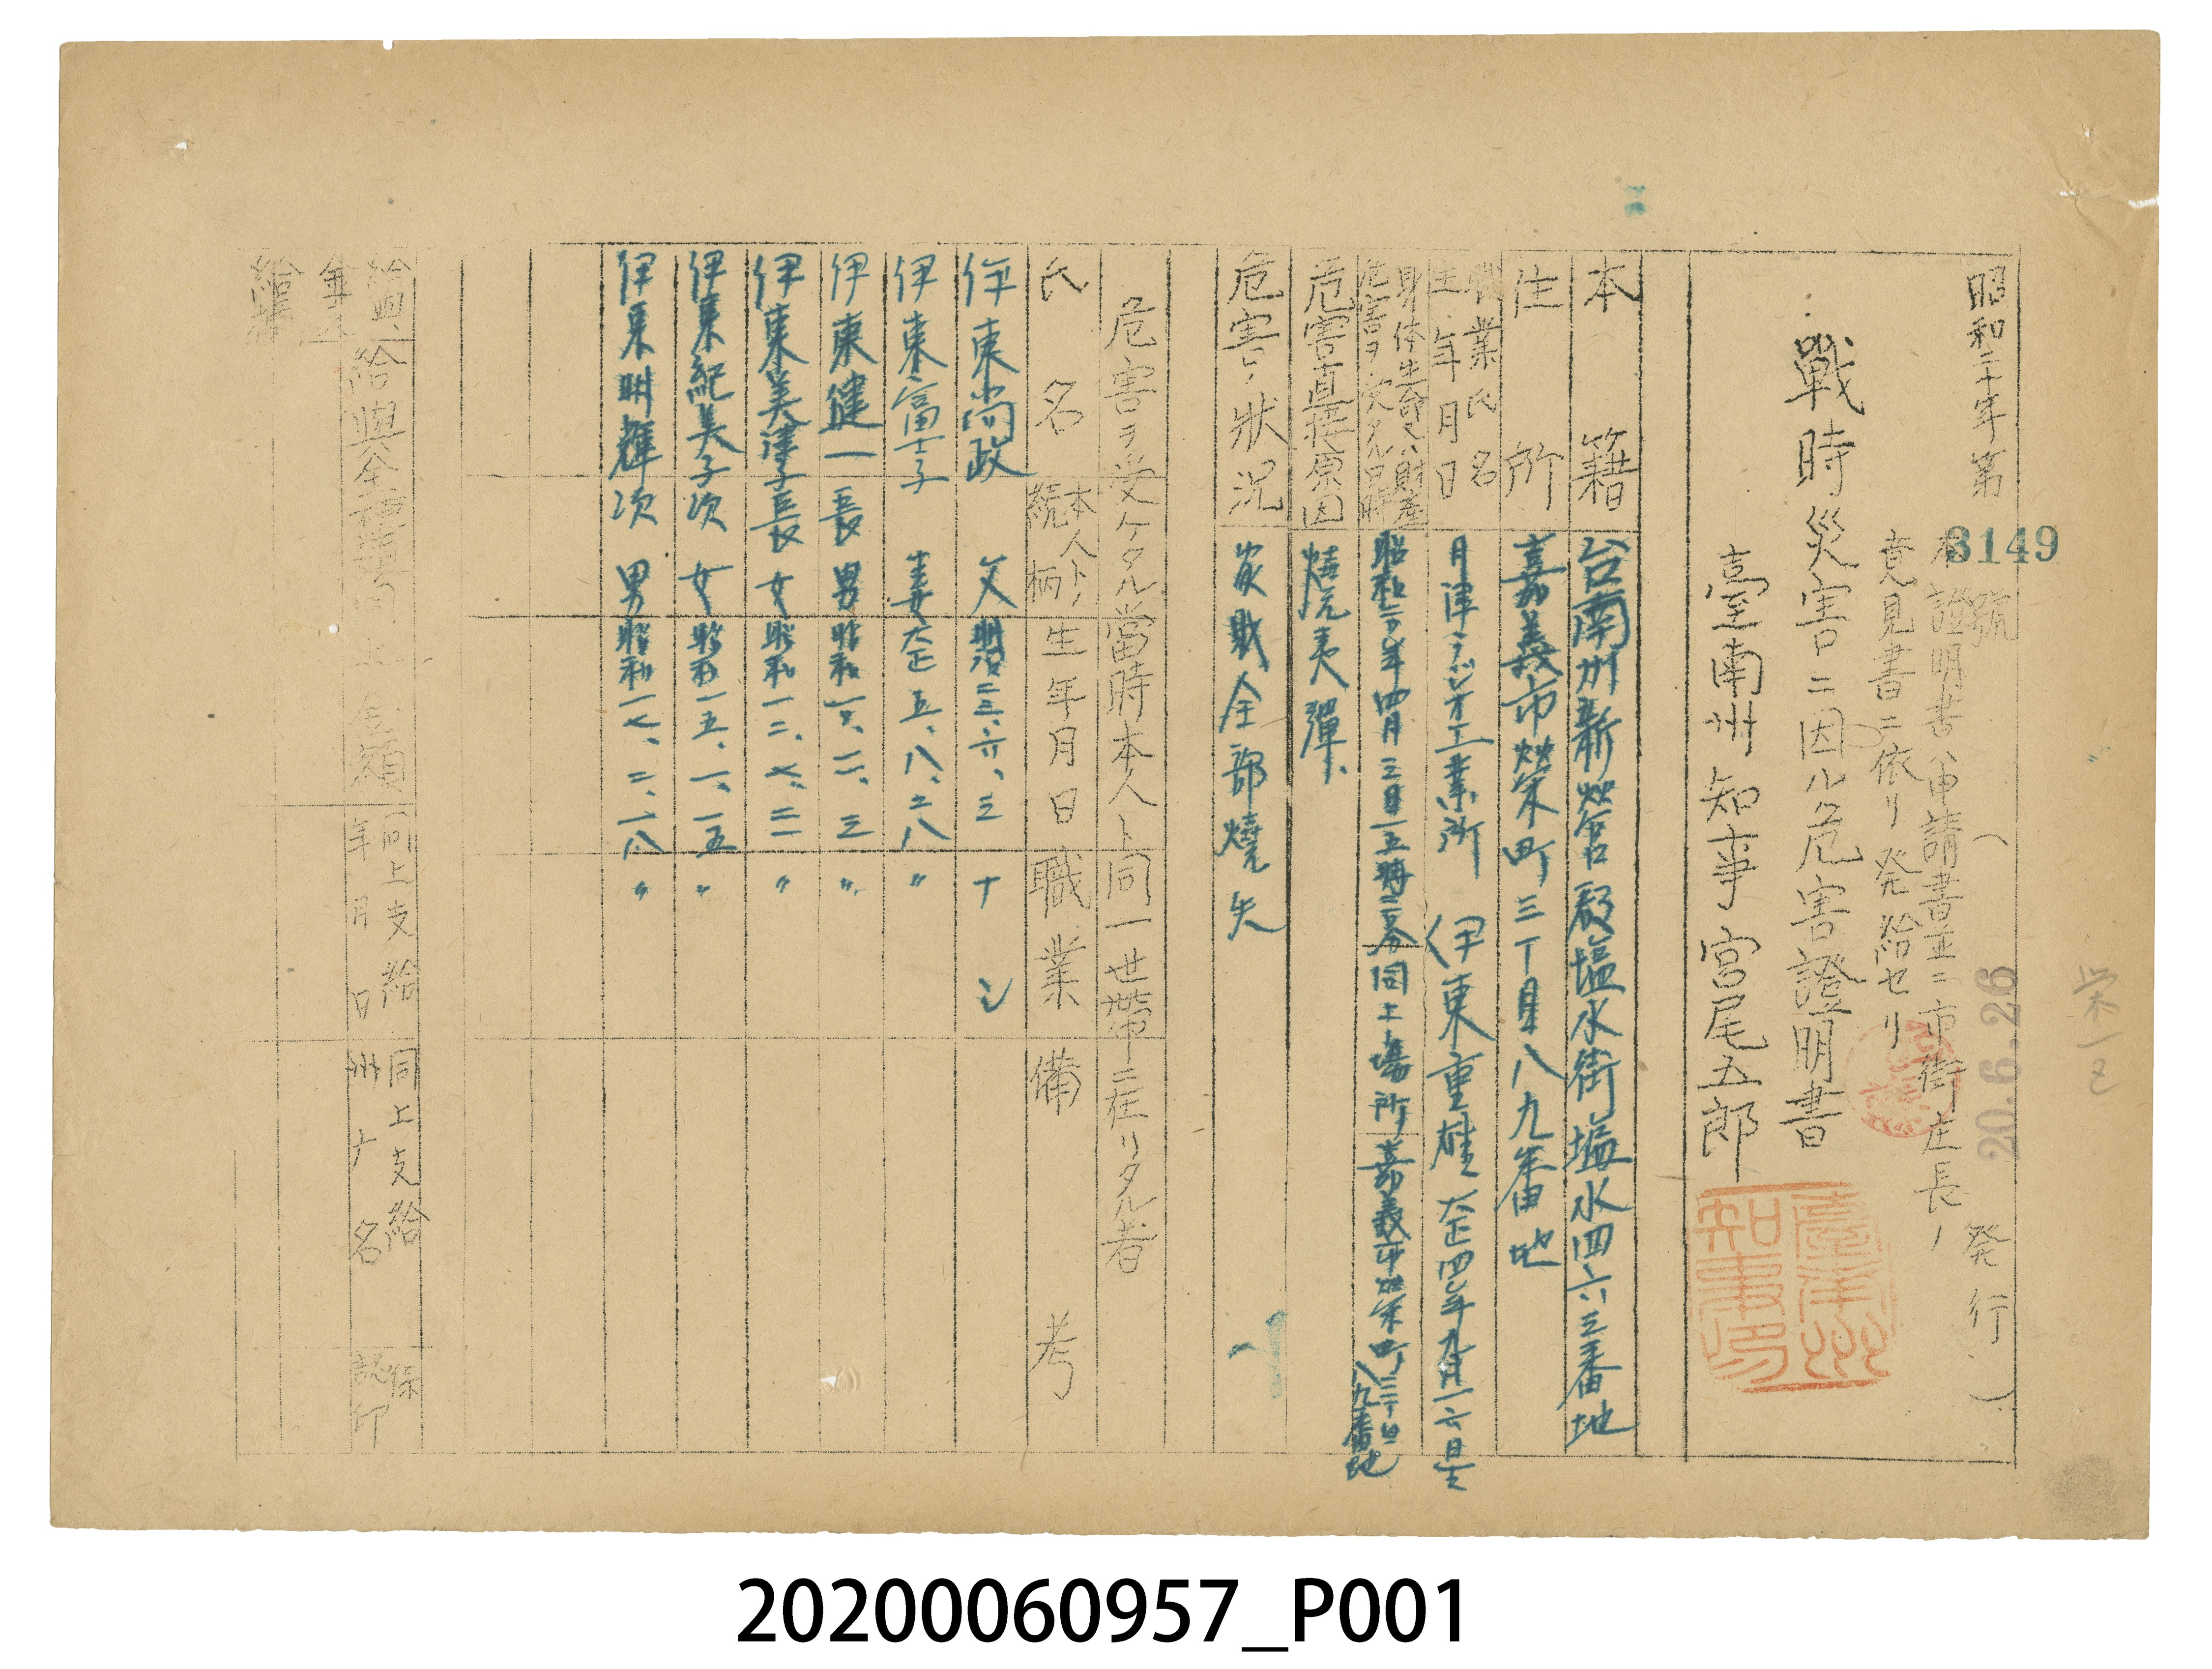 昭和二十年第 3149 號
(20.6.26 発行)
本證明書ハ申請書並ニ市街庄長ノ
意見書ニ依リ発給セリ
戰時災害ニ因ル危害證明書
臺南州知事 宮尾五郎
臺南州知事印
本籍 台南州新営郡塩水街塩水四六三番地
住所 嘉義市栄町三丁目八九番地
職業氏名
生年月日
月津ラジオ工業所 伊東重雄 大正四年九月一六日生
身体生命又ハ財産
危害ヲ受ケタル日時
昭和二〇年四月三日一五時二〇分 同上場所 嘉義市栄町三丁目八九番地
危害直接原因 焼夷彈
危害ノ狀況 家財全部燒失
危害ヲ受ケタル當時本人ト同一世帶ニ在リタル者
氏名 本人トノ続柄 生年月日 職業 備考
伊東尚政 父 明治二三、六、三 ナシ
伊東富士子 妻 大正五、八、二八 〃
伊東健一 長男 昭和一〇、一二、三 〃
伊東美津子 長女 昭和一二、七、二一 〃
伊東紀美子 次女 昭和一五、一、一五 〃
伊東明輝 次男 昭和一七、二、一八 〃
給與金種類 同上金額 同上支給年月日 同上支給州庁名 係認印
栄一区
20200060957_P001